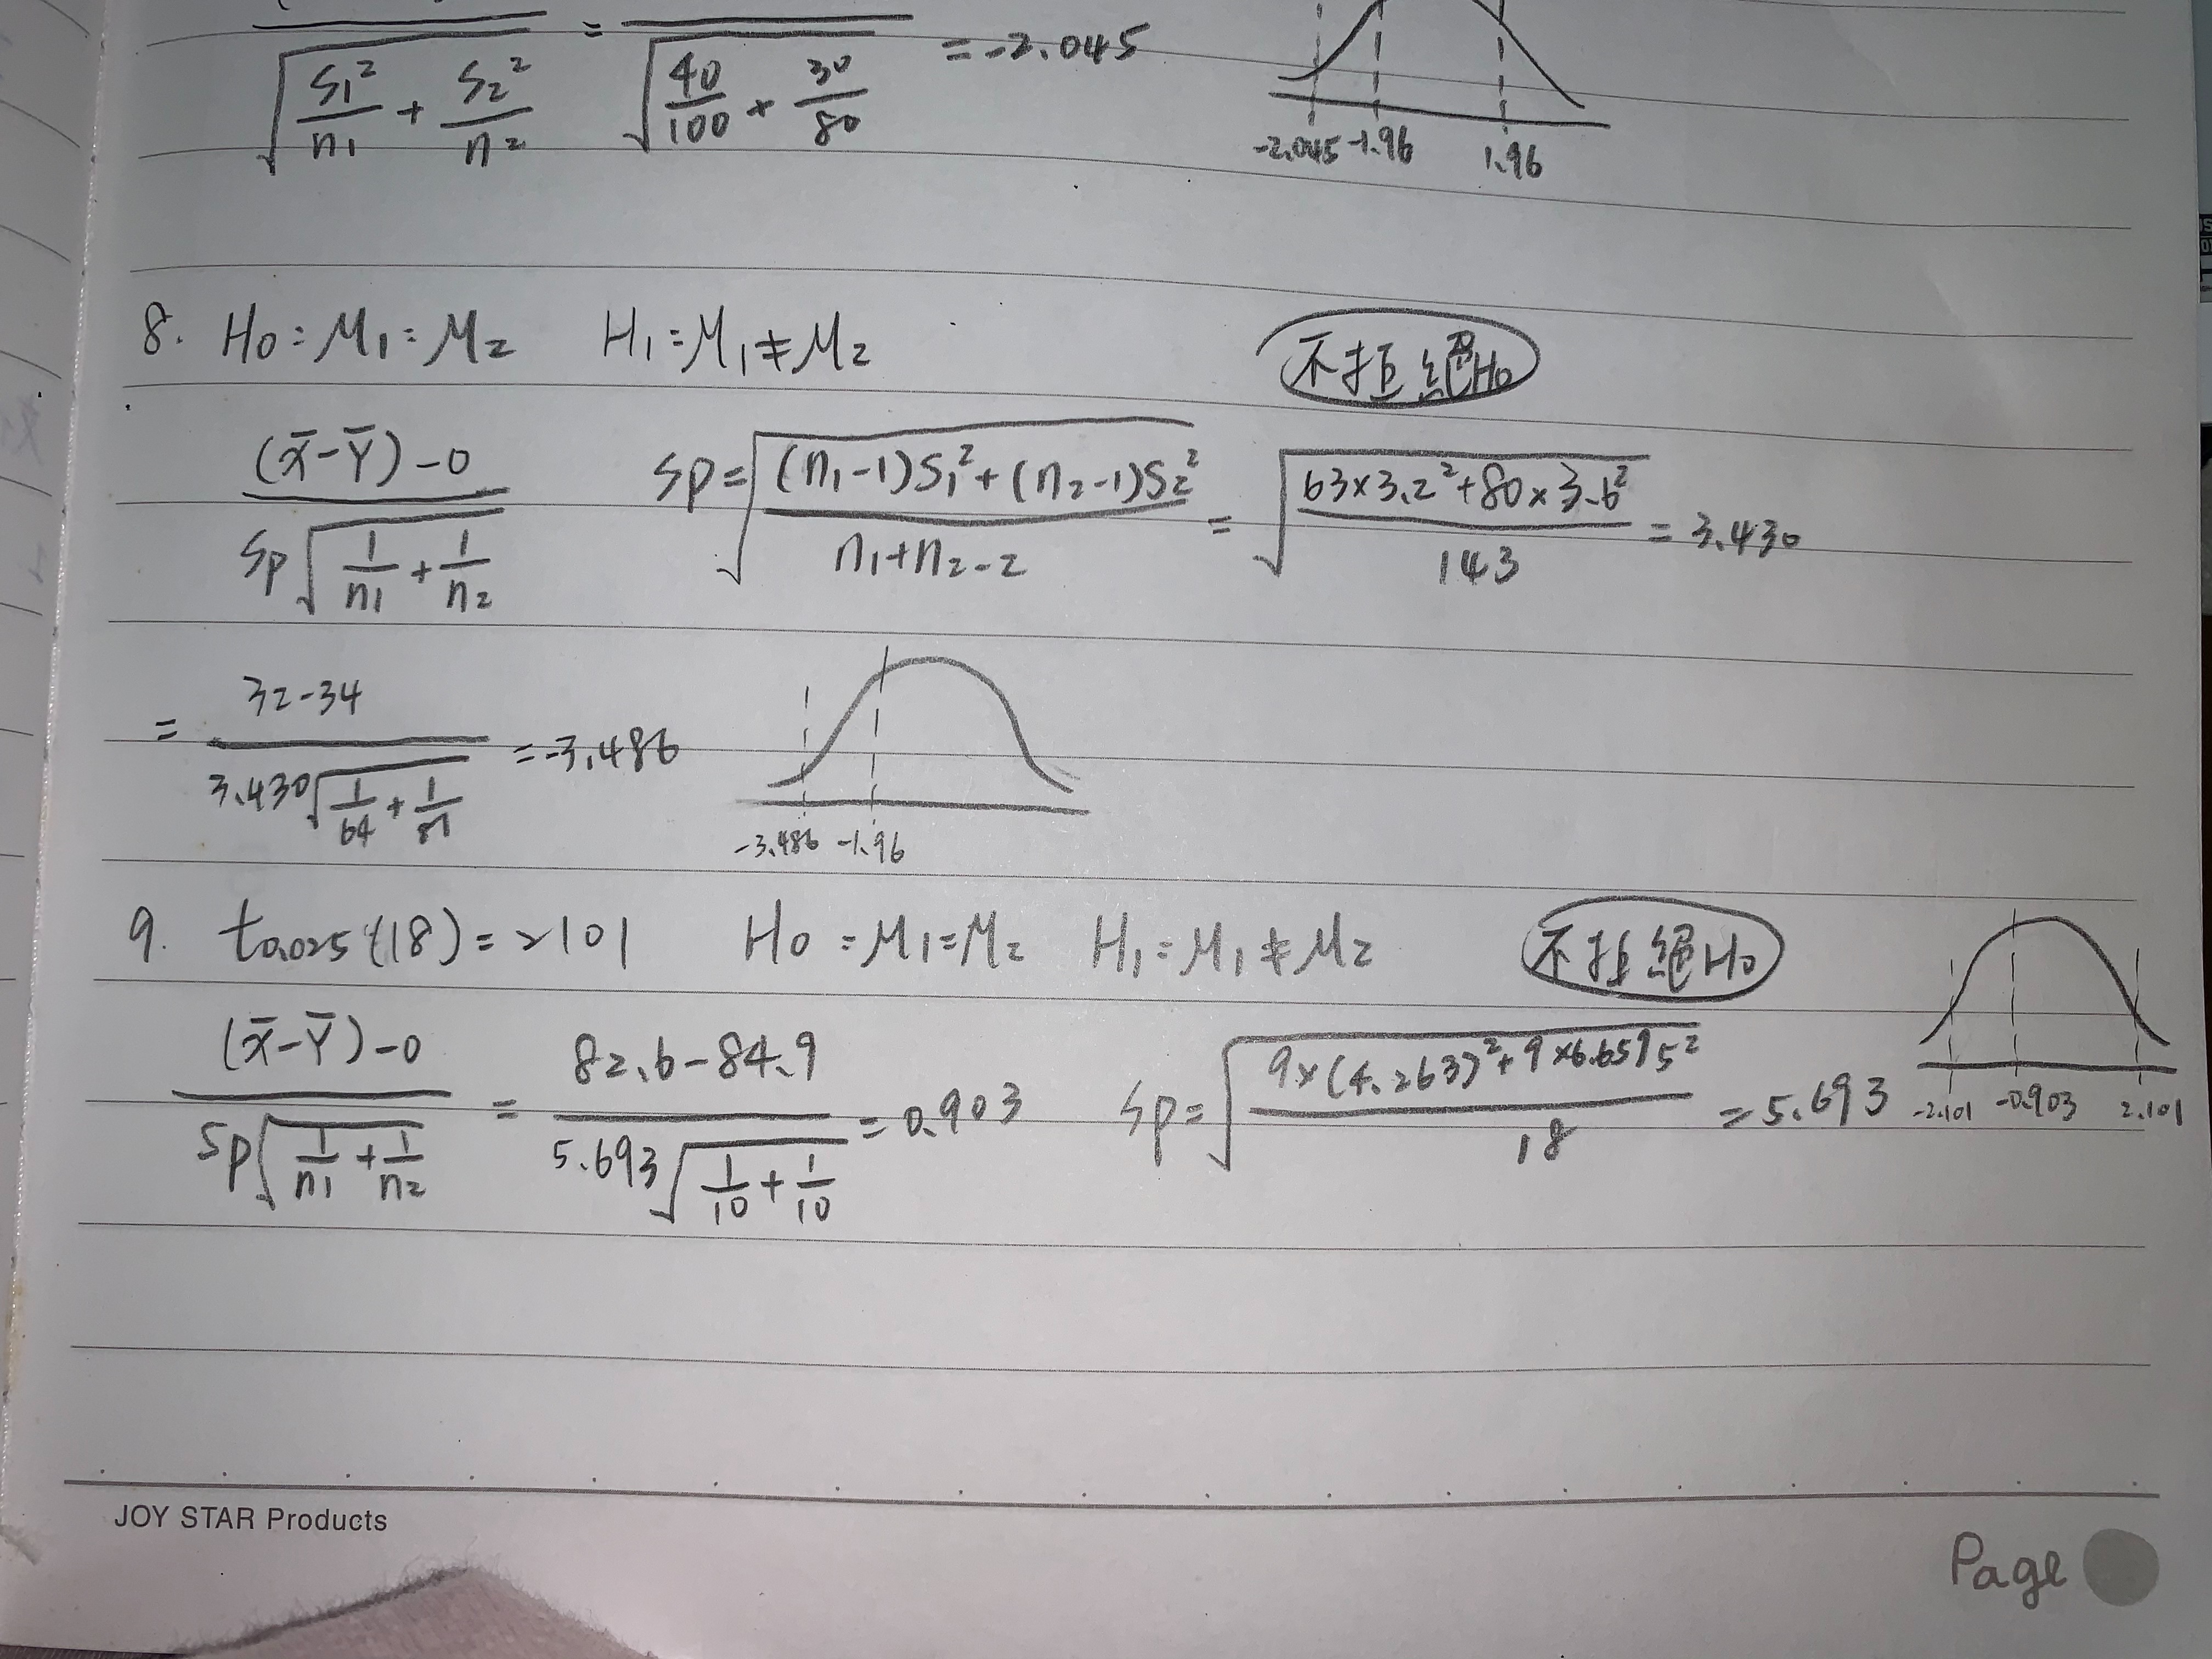 √(S₁²/n₁ + S₂²/n₂) = √(40/100 + 30/80) = -2.045
-2.045 -1.96 1.96
8. H₀: M₁ = M₂ H₁: M₁ ≠ M₂ 不拒絕H₀
(x̄-Ȳ)-0 / Sp√(1/n₁ + 1/n₂) Sp = √((n₁-1)S₁² + (n₂-1)S₂² / n₁+n₂-2) = √(63×3.2²+80×3.6² / 143) = 3.430
= 32-34 / 3.430√(1/64 + 1/81) = -3.486
-3.486 -1.96
9. t0.025(18) = 2101 H₀: M₁=M₂ H₁: M₁≠M₂ 不拒絕H₀
(x̄-Ȳ)-0 / Sp√(1/n₁ + 1/n₂) = 82.6-84.9 / 5.693√(1/10 + 1/10) = 0.903 Sp = √(9×(4.263)²+9×6.6595² / 18) = 5.693
-2.101 -0.903 2.101
JOY STAR Products
Page